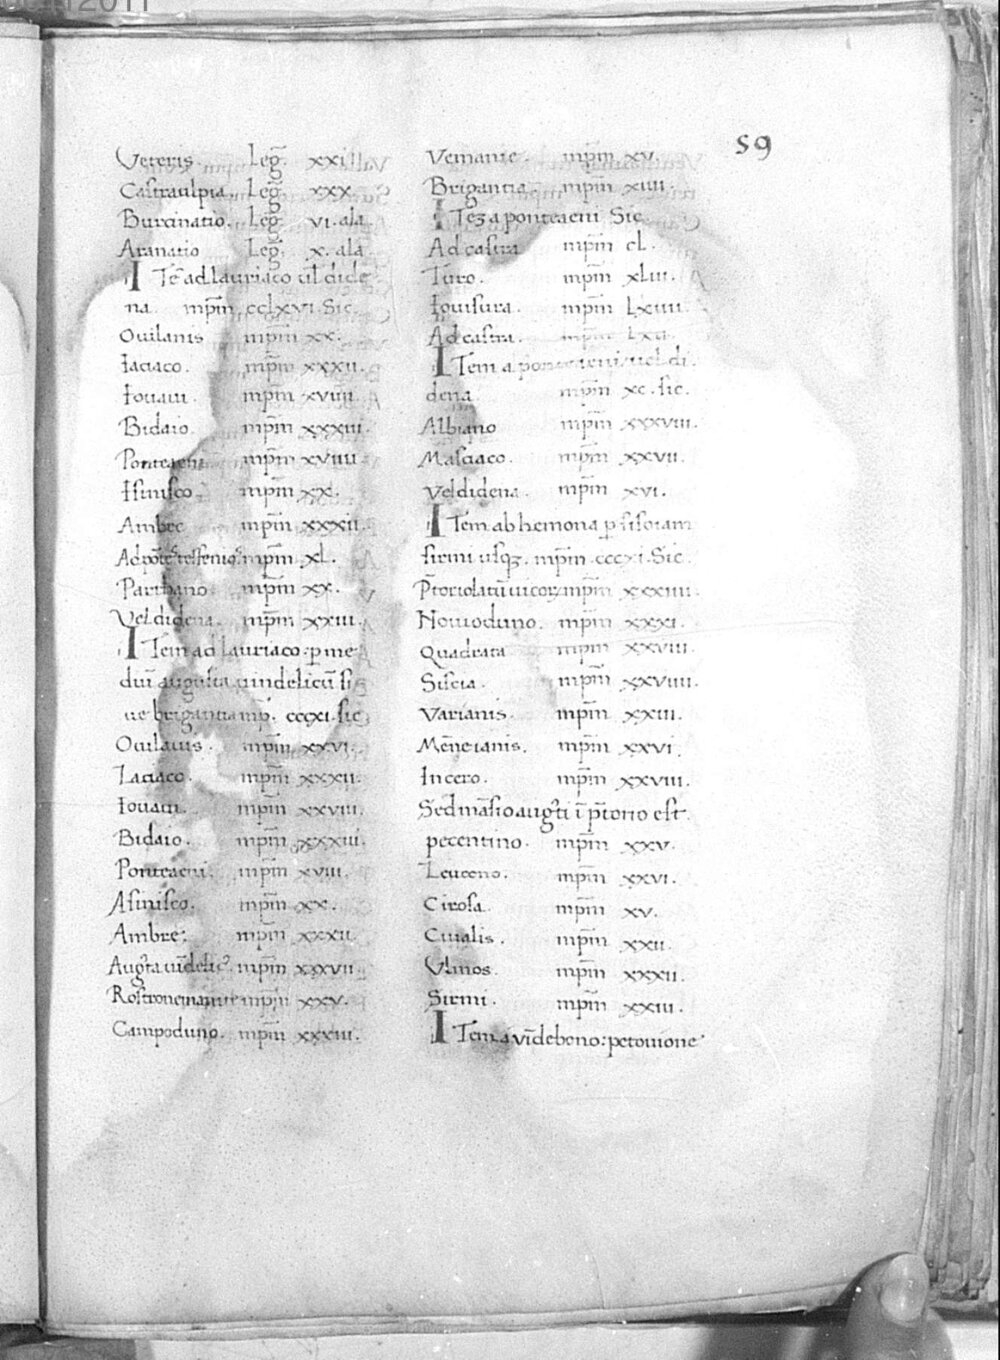 59
Veteris. Leg̅. xxi
Castraulpia. Leg̅. xxx.
Burcinatio. Leg̅. vi. ala
Aranatio Leg̅. x. ala
ITe̅ adlauriaco ul̅ dide
na. mpm̅ cclxvi. Sic
Ouilanis mpm̅ xx.
Iaciaco. mpm̅ xxxii.
Iouaui. mpm̅ xviiii.
Bidaio. mpm̅ xxxiii.
Ponteaeni mpm̅ xviiii
Isinisco. mpm̅ xx.
Ambre mpm̅ xxxii.
mpm̅ xl.
Parthano mpm̅ xx.
Veldidena. mpm̅ xxiii.
ITem ad lauriaco. p̱ me
diu̅ augusta uindelicu̅ si
ue brigantia mp̅. cccxi. sic
Ouilauis. mpm̅ xxvi.
Laciaco. mpm̅ xxxii.
Iouaui. mpm̅ xxviii.
Bidaio. mpm̅ xxxiii.
Ponteaeni. mpm̅ xviii.
Asinisco. mpm̅ xx.
Ambre: mpm̅ xxxii
mpm̅ xxxvii
Rostronemauie mpm̅ xxv.
Campoduno. mpm̅ xxxiii.
Vemanie. mpm̅ xv.
Brigantia mpm̅ xiiii.
ITeʒ a ponteaeni Sic
Ad castra mpm̅ cl.
Turo. mpm̅ xliii.
Iouisura. mpm̅ lxiiii.
Ad castra. mpm̅ lxii.
ITem a ponteaeni uel di
dena. mpm̅ xc. sic.
Albiano mpm̅ xxxviii.
Masciaco. mpm̅ xxvii.
Veldidena. mpm̅ xvi.
ITem ab hemona p̱ sisciam
sirmi usqʒ. mpm̅ cccxi. Sic.
P̅toriolatu̅ uicoꝝ mpm̅ xxxiiii.
Nouioduno. mpm̅ xxxi.
Quadrata mpm̅ xxviii.
Siscia. mpm̅ xxviiii.
Varianis. mpm̅ xxiii.
Me̅neianis. mpm̅ xxvi.
Incero. mpm̅ xxviii.
Sed ma̅sio augᵗi i̅ p̅torio est.
pecentino. mpm̅ xxv.
Leuceno. mpm̅ xxvi.
Cirosa. mpm̅ xv.
Ciuialis. mpm̅ xxii.
Vlmos. mpm̅ xxxii.
Sirmi. mpm̅ xxiii.
ITem a vi̅debono: petouione